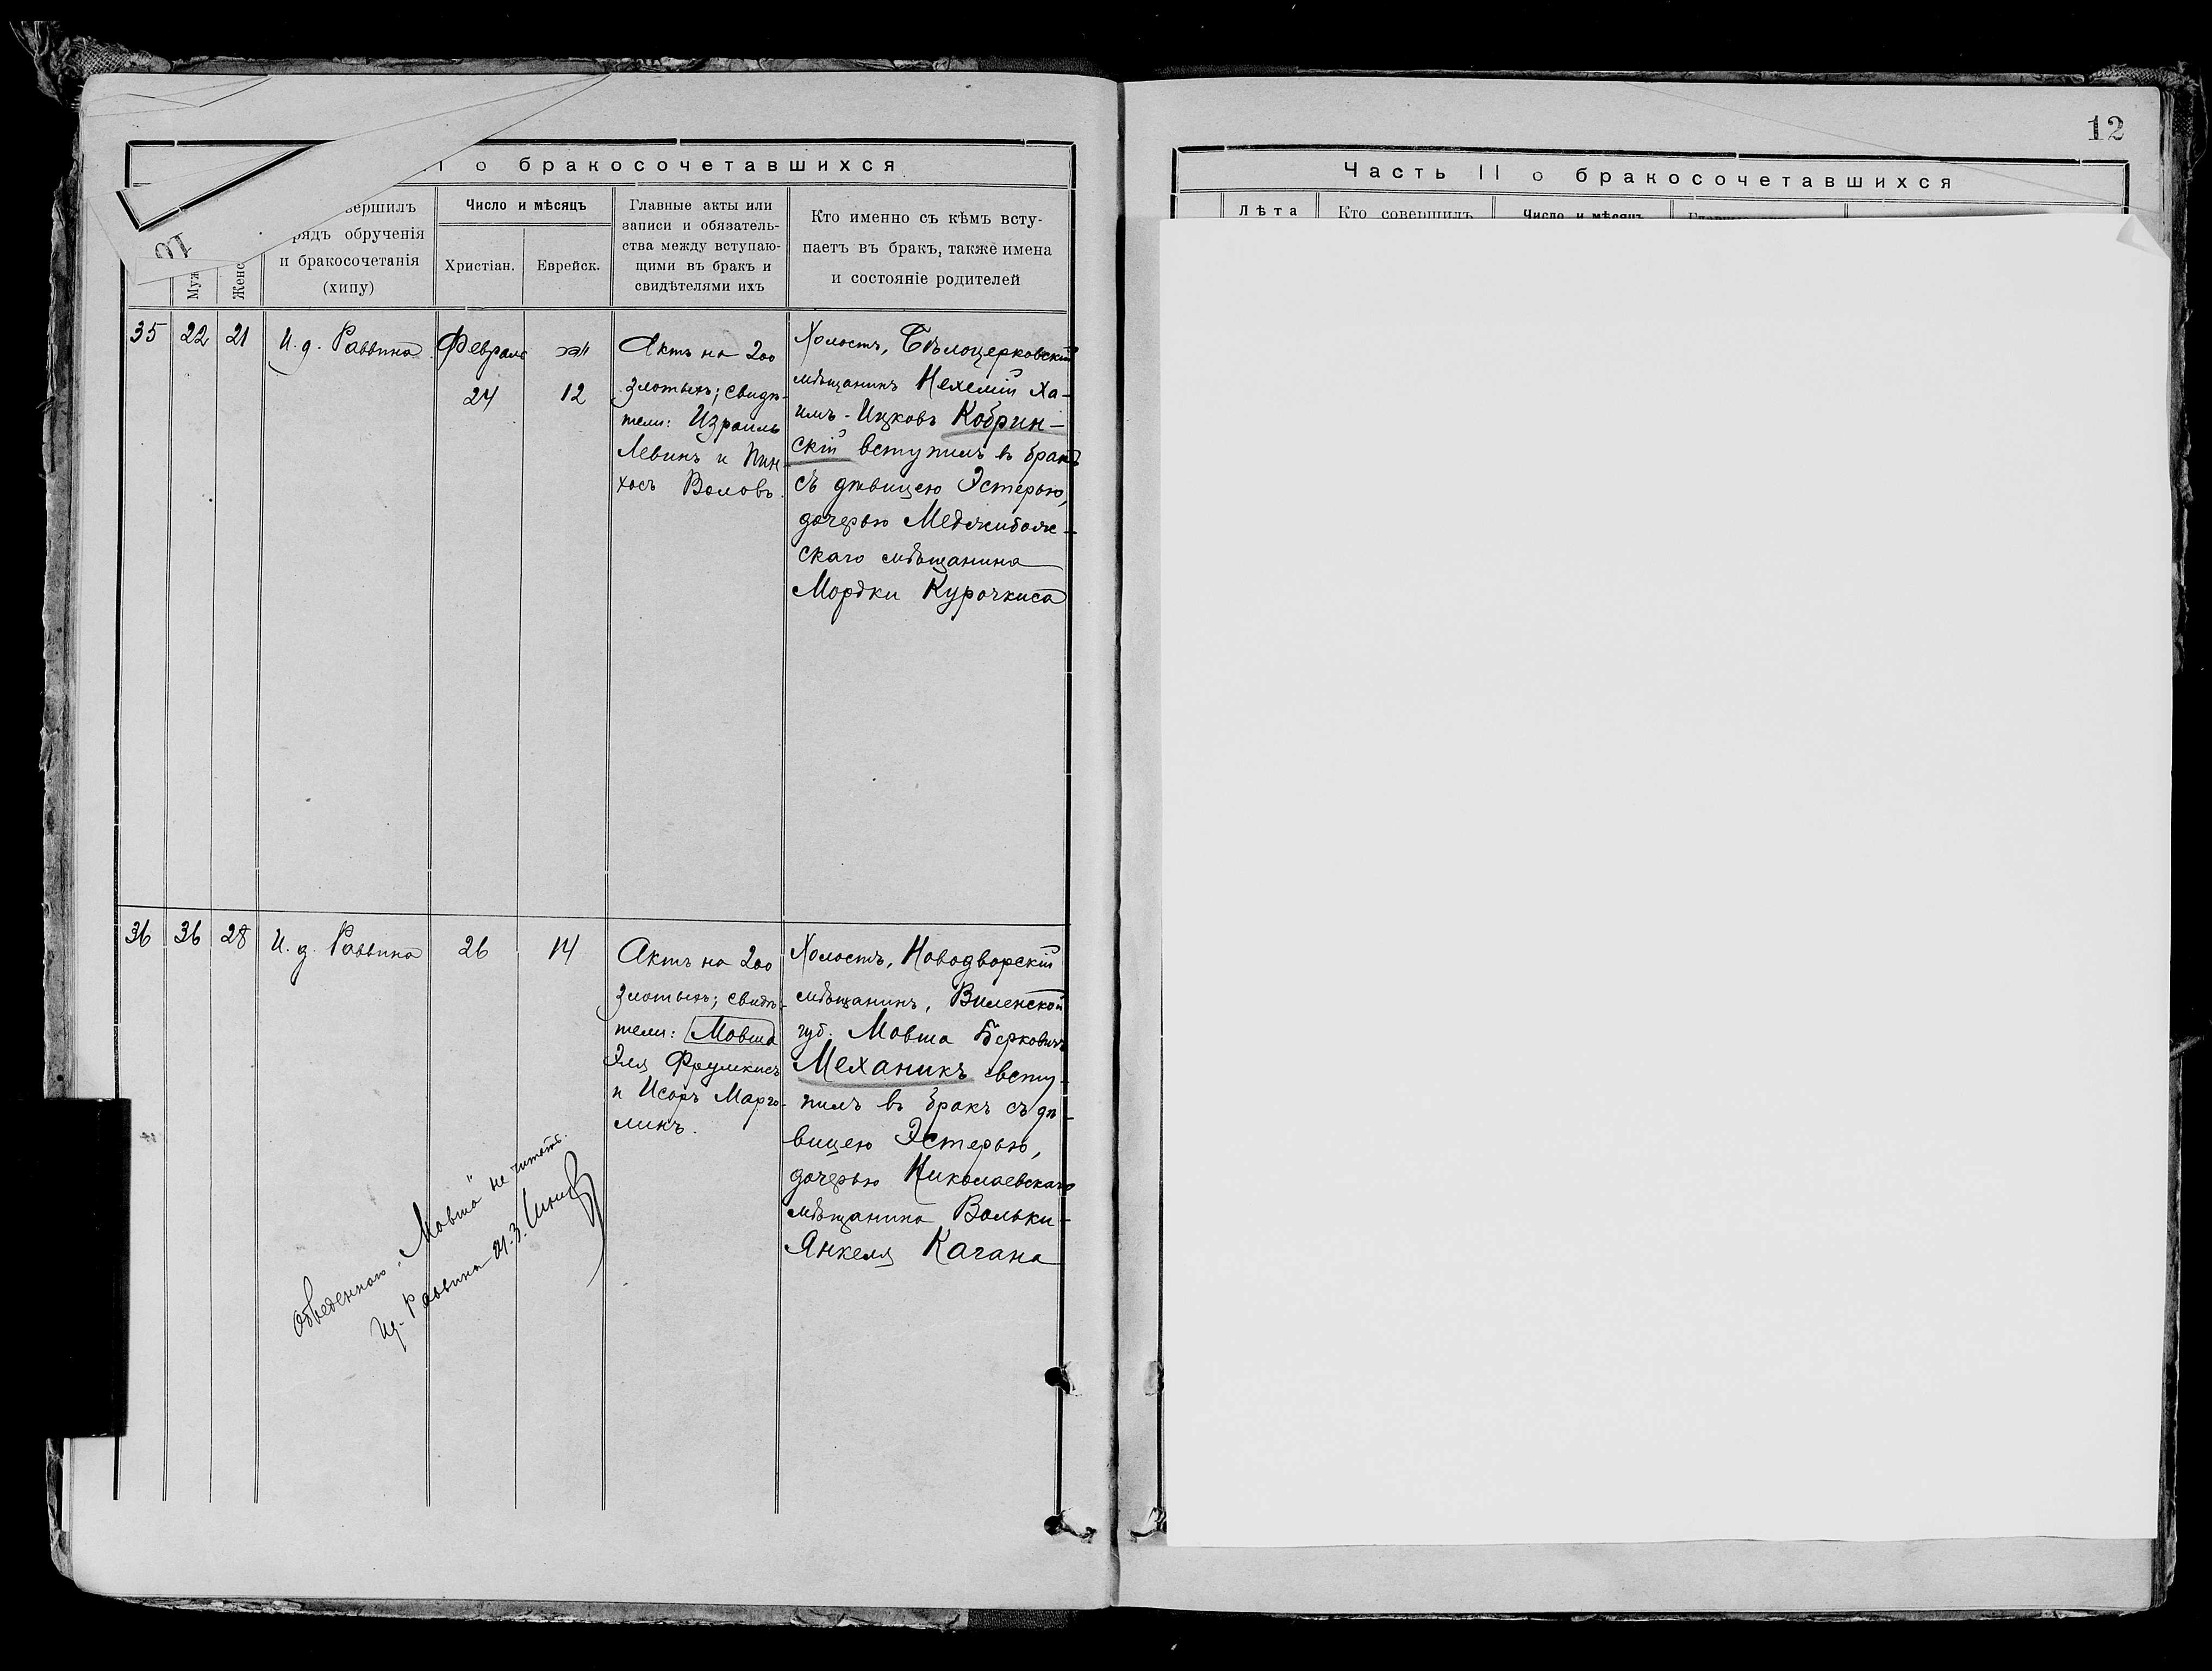 12
о бракосочетавшихся
вершилъ
рядъ обрученія
и бракосочетанія
(хипу)
Муж
Женс
Число и мѣсяцъ
Христіан.
Еврейск.
Главные акты или
записи и обязатель-
ства между вступаю-
щими въ бракъ и
свидѣтелями ихъ
Кто именно съ кѣмъ всту-
паетъ въ бракъ, также имена
и состояніе родителей
35
22
21
И. д. Раввина
Февраля
24
12
Актъ на 200
злотыхъ; свидѣ-
тели: Израиль
Левинъ и Пин-
хосъ Воловъ.
Холостъ, Бѣлоцерковскій
мѣщанинъ Нехемій Ха-
имъ-Ицковъ Кобрин-
скій вступилъ въ бракъ
съ дѣвицею Эстерью,
дочерью Меджибож-
скаго мѣщанина
Мордки Курочкиса
36
36
28
И. д. Раввина
26
14
Актъ на 200
злотыхъ; свидѣ-
тели: Мовша
Эля Фрумкисъ
и Исоръ Марго-
линъ.
Холостъ, Новодворскій
мѣщанинъ, Виленской
губ. Мовша Берковичъ
Механикъ всту-
пилъ въ бракъ съ дѣ-
вицею Эстерью,
дочерью Николаевскаго
мѣщанина Вольки-
Янкеля Кагана
Обведенного „Мовша" не читать.
И. д. Раввина
Часть II о бракосочетавшихся
Лѣта
Кто совершилъ
Число и мѣсяцъ